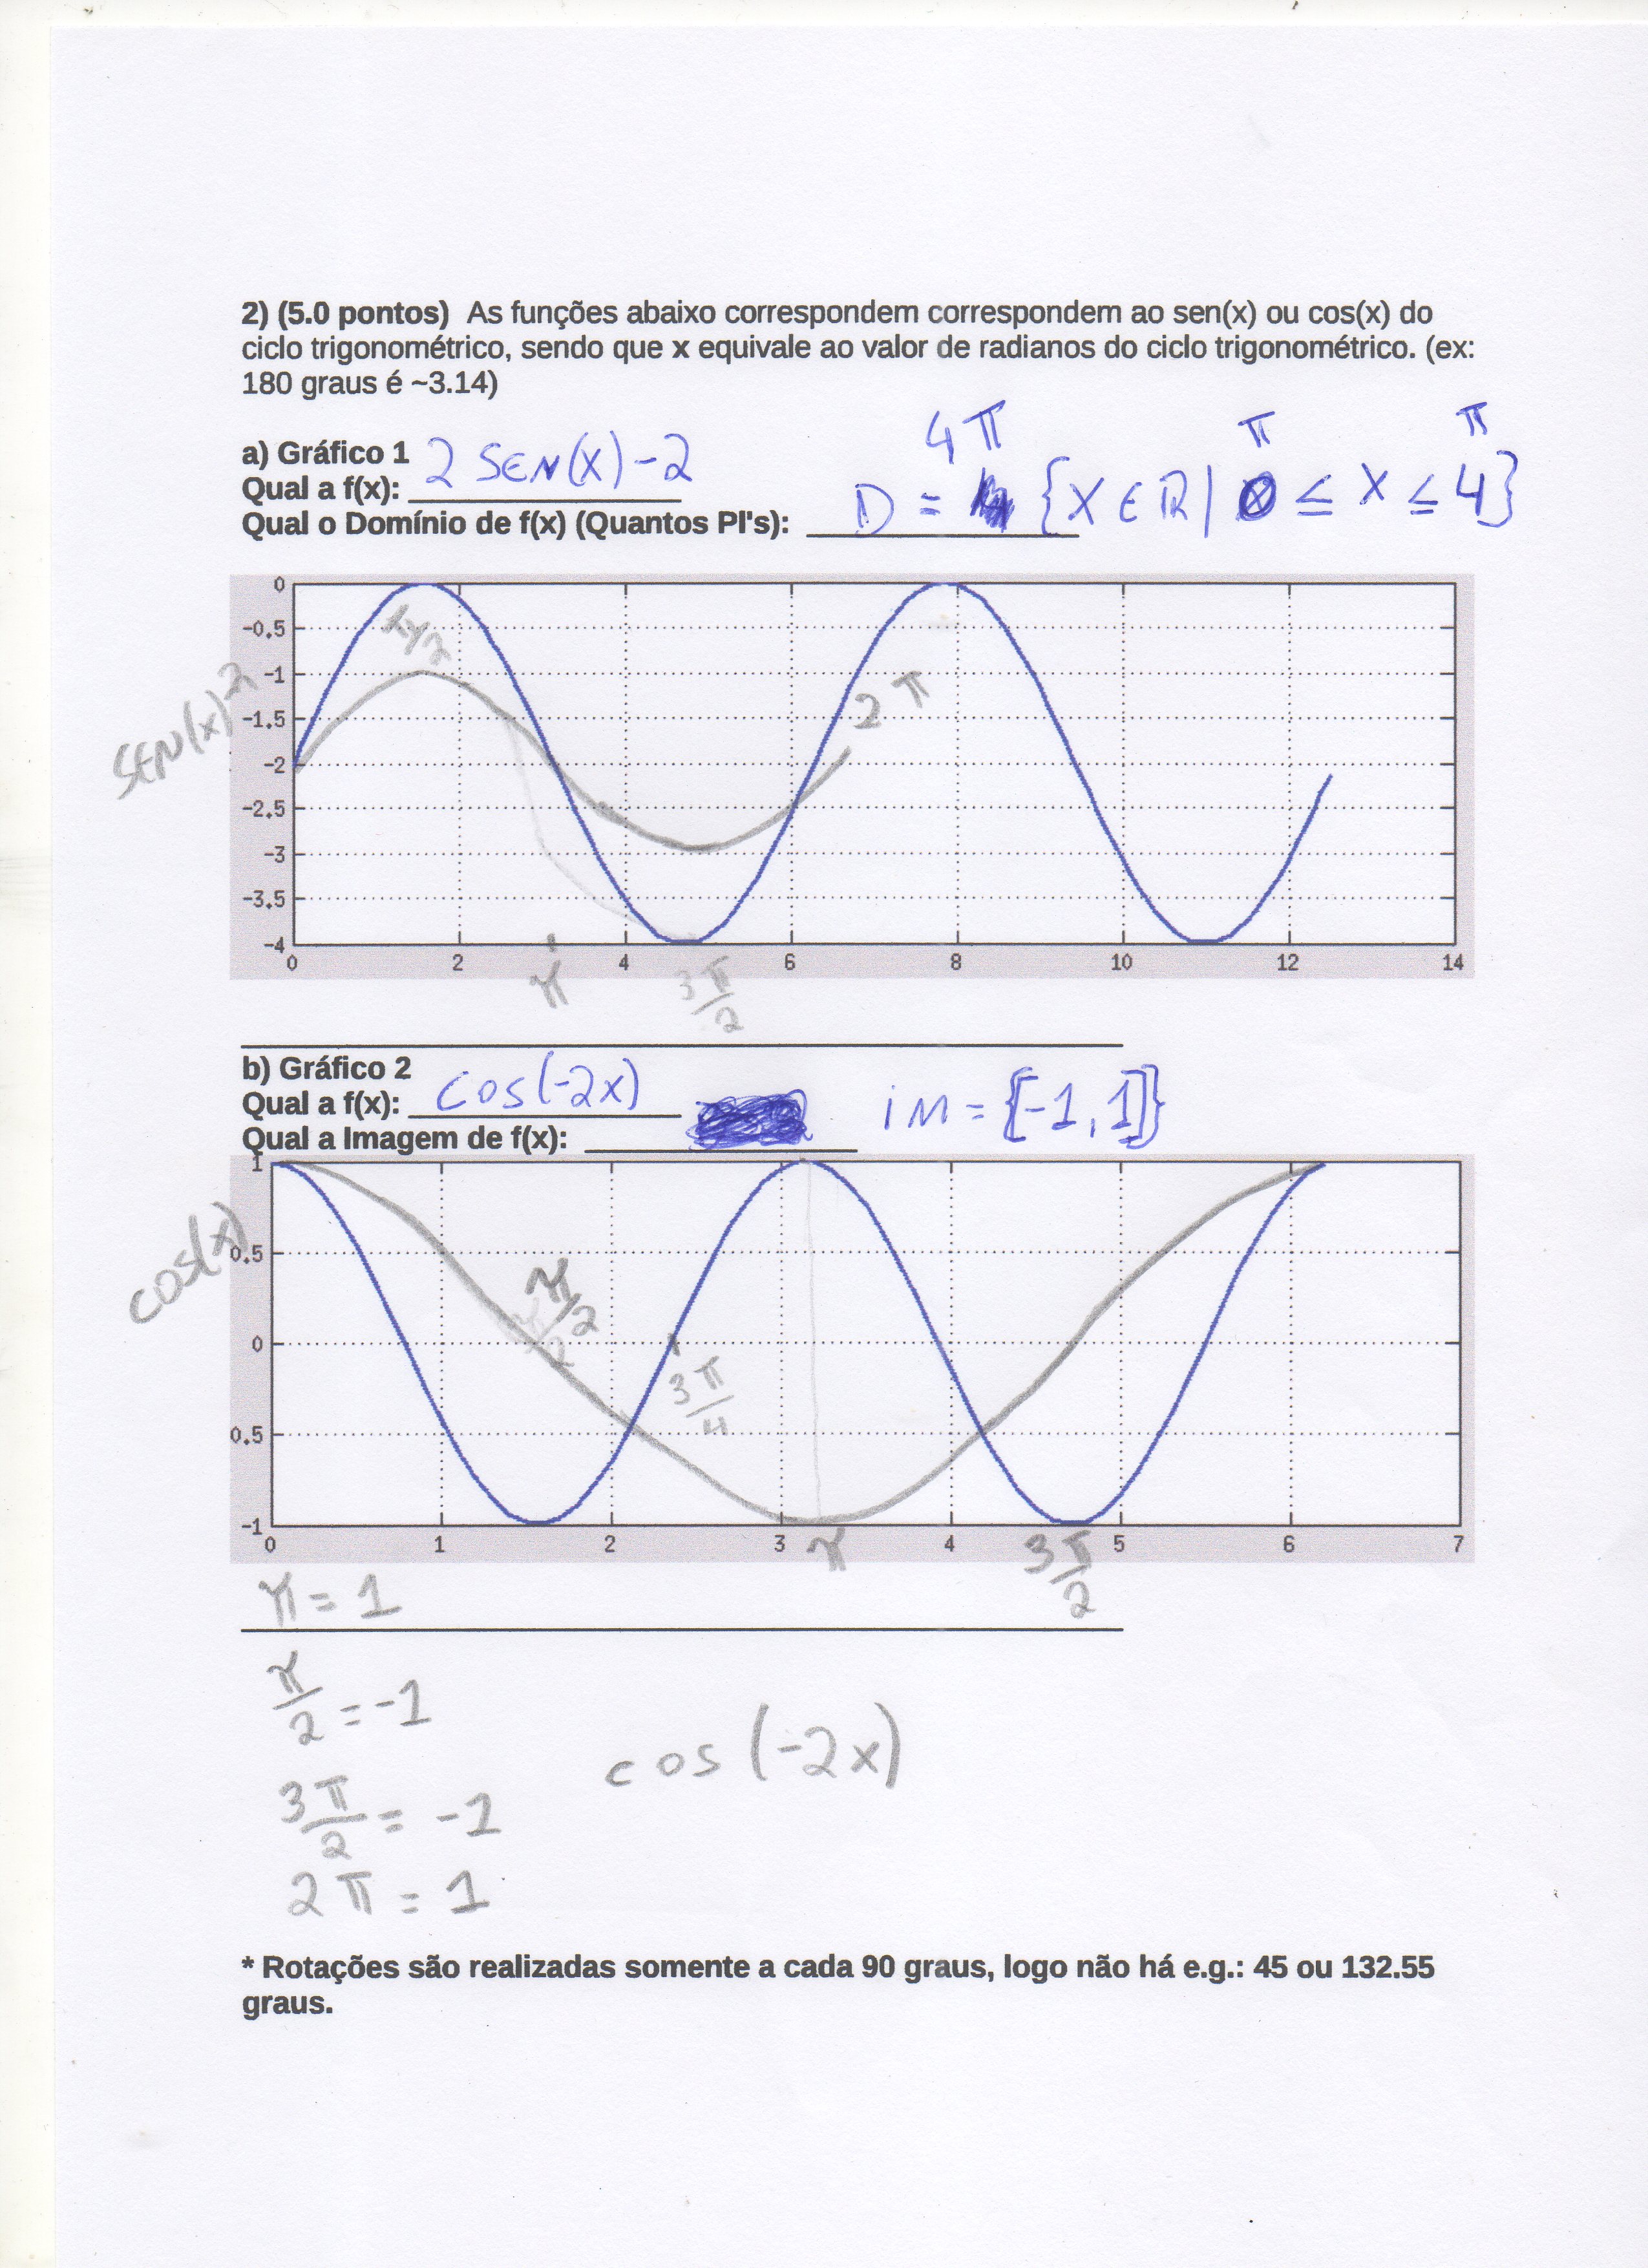 2) (5.0 pontos) As funções abaixo correspondem correspondem ao sen(x) ou cos(x) do
ciclo trigonométrico, sendo que x equivale ao valor de radianos do ciclo trigonométrico. (ex:
180 graus é ~3.14)
4π π π
a) Gráfico 1
Qual a f(x): 2 SEN(X)-2
Qual o Domínio de f(x) (Quantos PI's): D = {X ∈ R | 0 ≤ X ≤ 4}
0
-0.5
-1
-1.5
-2
-2.5
-3
-3.5
-4
SEN(x)2
π/2
2π
0 2 4 6 8 10 12 14
π 3π/2
b) Gráfico 2
Qual a f(x): cos(-2x)
Qual a Imagem de f(x): iM = {[-1,1]}
1
0.5
0
0.5
-1
cos(x)
π/2
3π/4
0 1 2 3 4 5 6 7
π 3π/2
π = 1
π/2 = -1
cos (-2x)
3π/2 = -1
2π = 1
* Rotações são realizadas somente a cada 90 graus, logo não há e.g.: 45 ou 132.55
graus.